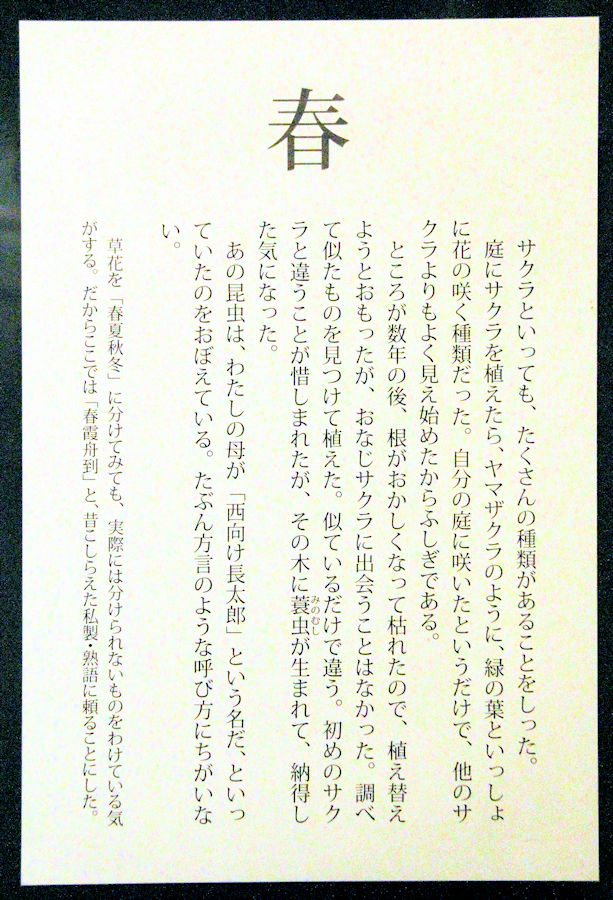 春
サクラといっても、たくさんの種類があることをしった。
庭にサクラを植えたら、ヤマザクラのように、緑の葉といっしょ
に花の咲く種類だった。自分の庭に咲いたというだけで、他のサ
クラよりもよく見え始めたからふしぎである。
ところが数年の後、根がおかしくなって枯れたので、植え替え
ようとおもったが、おなじサクラに出会うことはなかった。調べ
て似たものを見つけて植えた。似ているだけで違う。初めのサク
ラと違うことが惜しまれたが、その木に蓑虫が生まれて、納得し
みのむし
た気になった。
あの昆虫は、わたしの母が「西向け長太郎」という名だ、といっ
ていたのをおぼえている。たぶん方言のような呼び方にちがいな
い。
草花を「春夏秋冬」に分けてみても、実際には分けられないものをわけている気
がする。だからここでは「春霞舟到」と、昔こしらえた私製・熟語に頼ることにした。